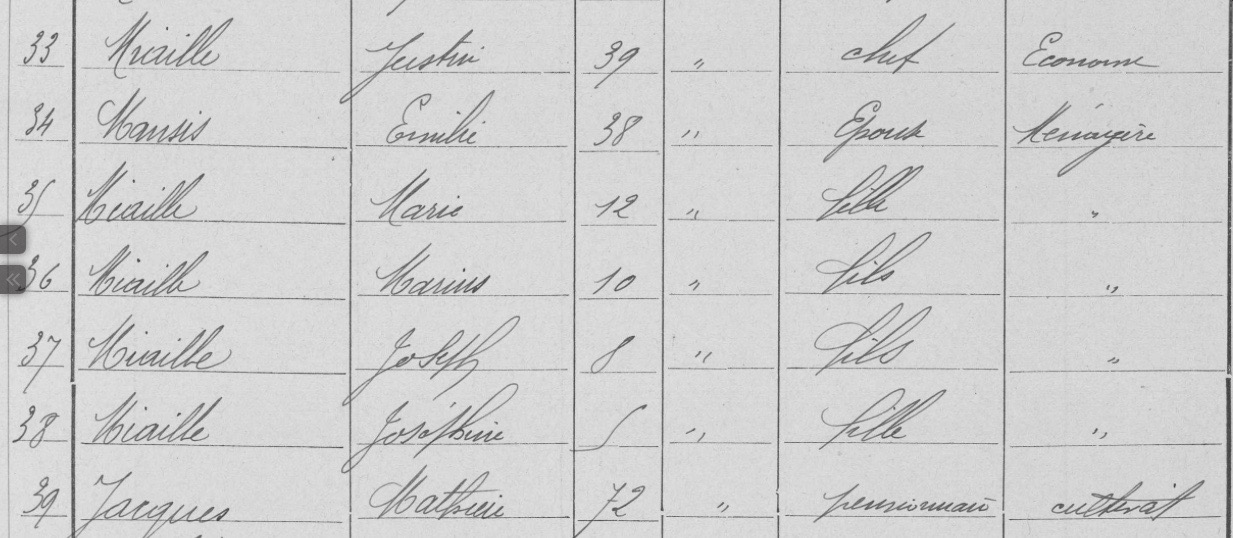 33 Miaille Justin 39 " chef Econome
34 Mansis Emilie 38 " Epouse Ménagère
35 Miaille Marie 12 " fille "
36 Miaille Marius 10 " fils "
37 Miaille Joseph 8 " fils "
38 Miaille Joséphine 5 " fille "
39 Jacques Mathieu 72 " pensionnaire cultivat